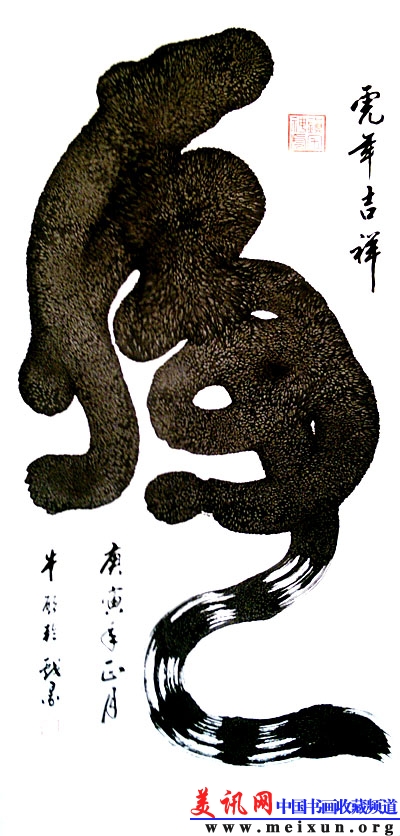 虎年吉祥
虎
庚寅年正月
牛
美讯网 中国书画收藏频道
www.meixun.org